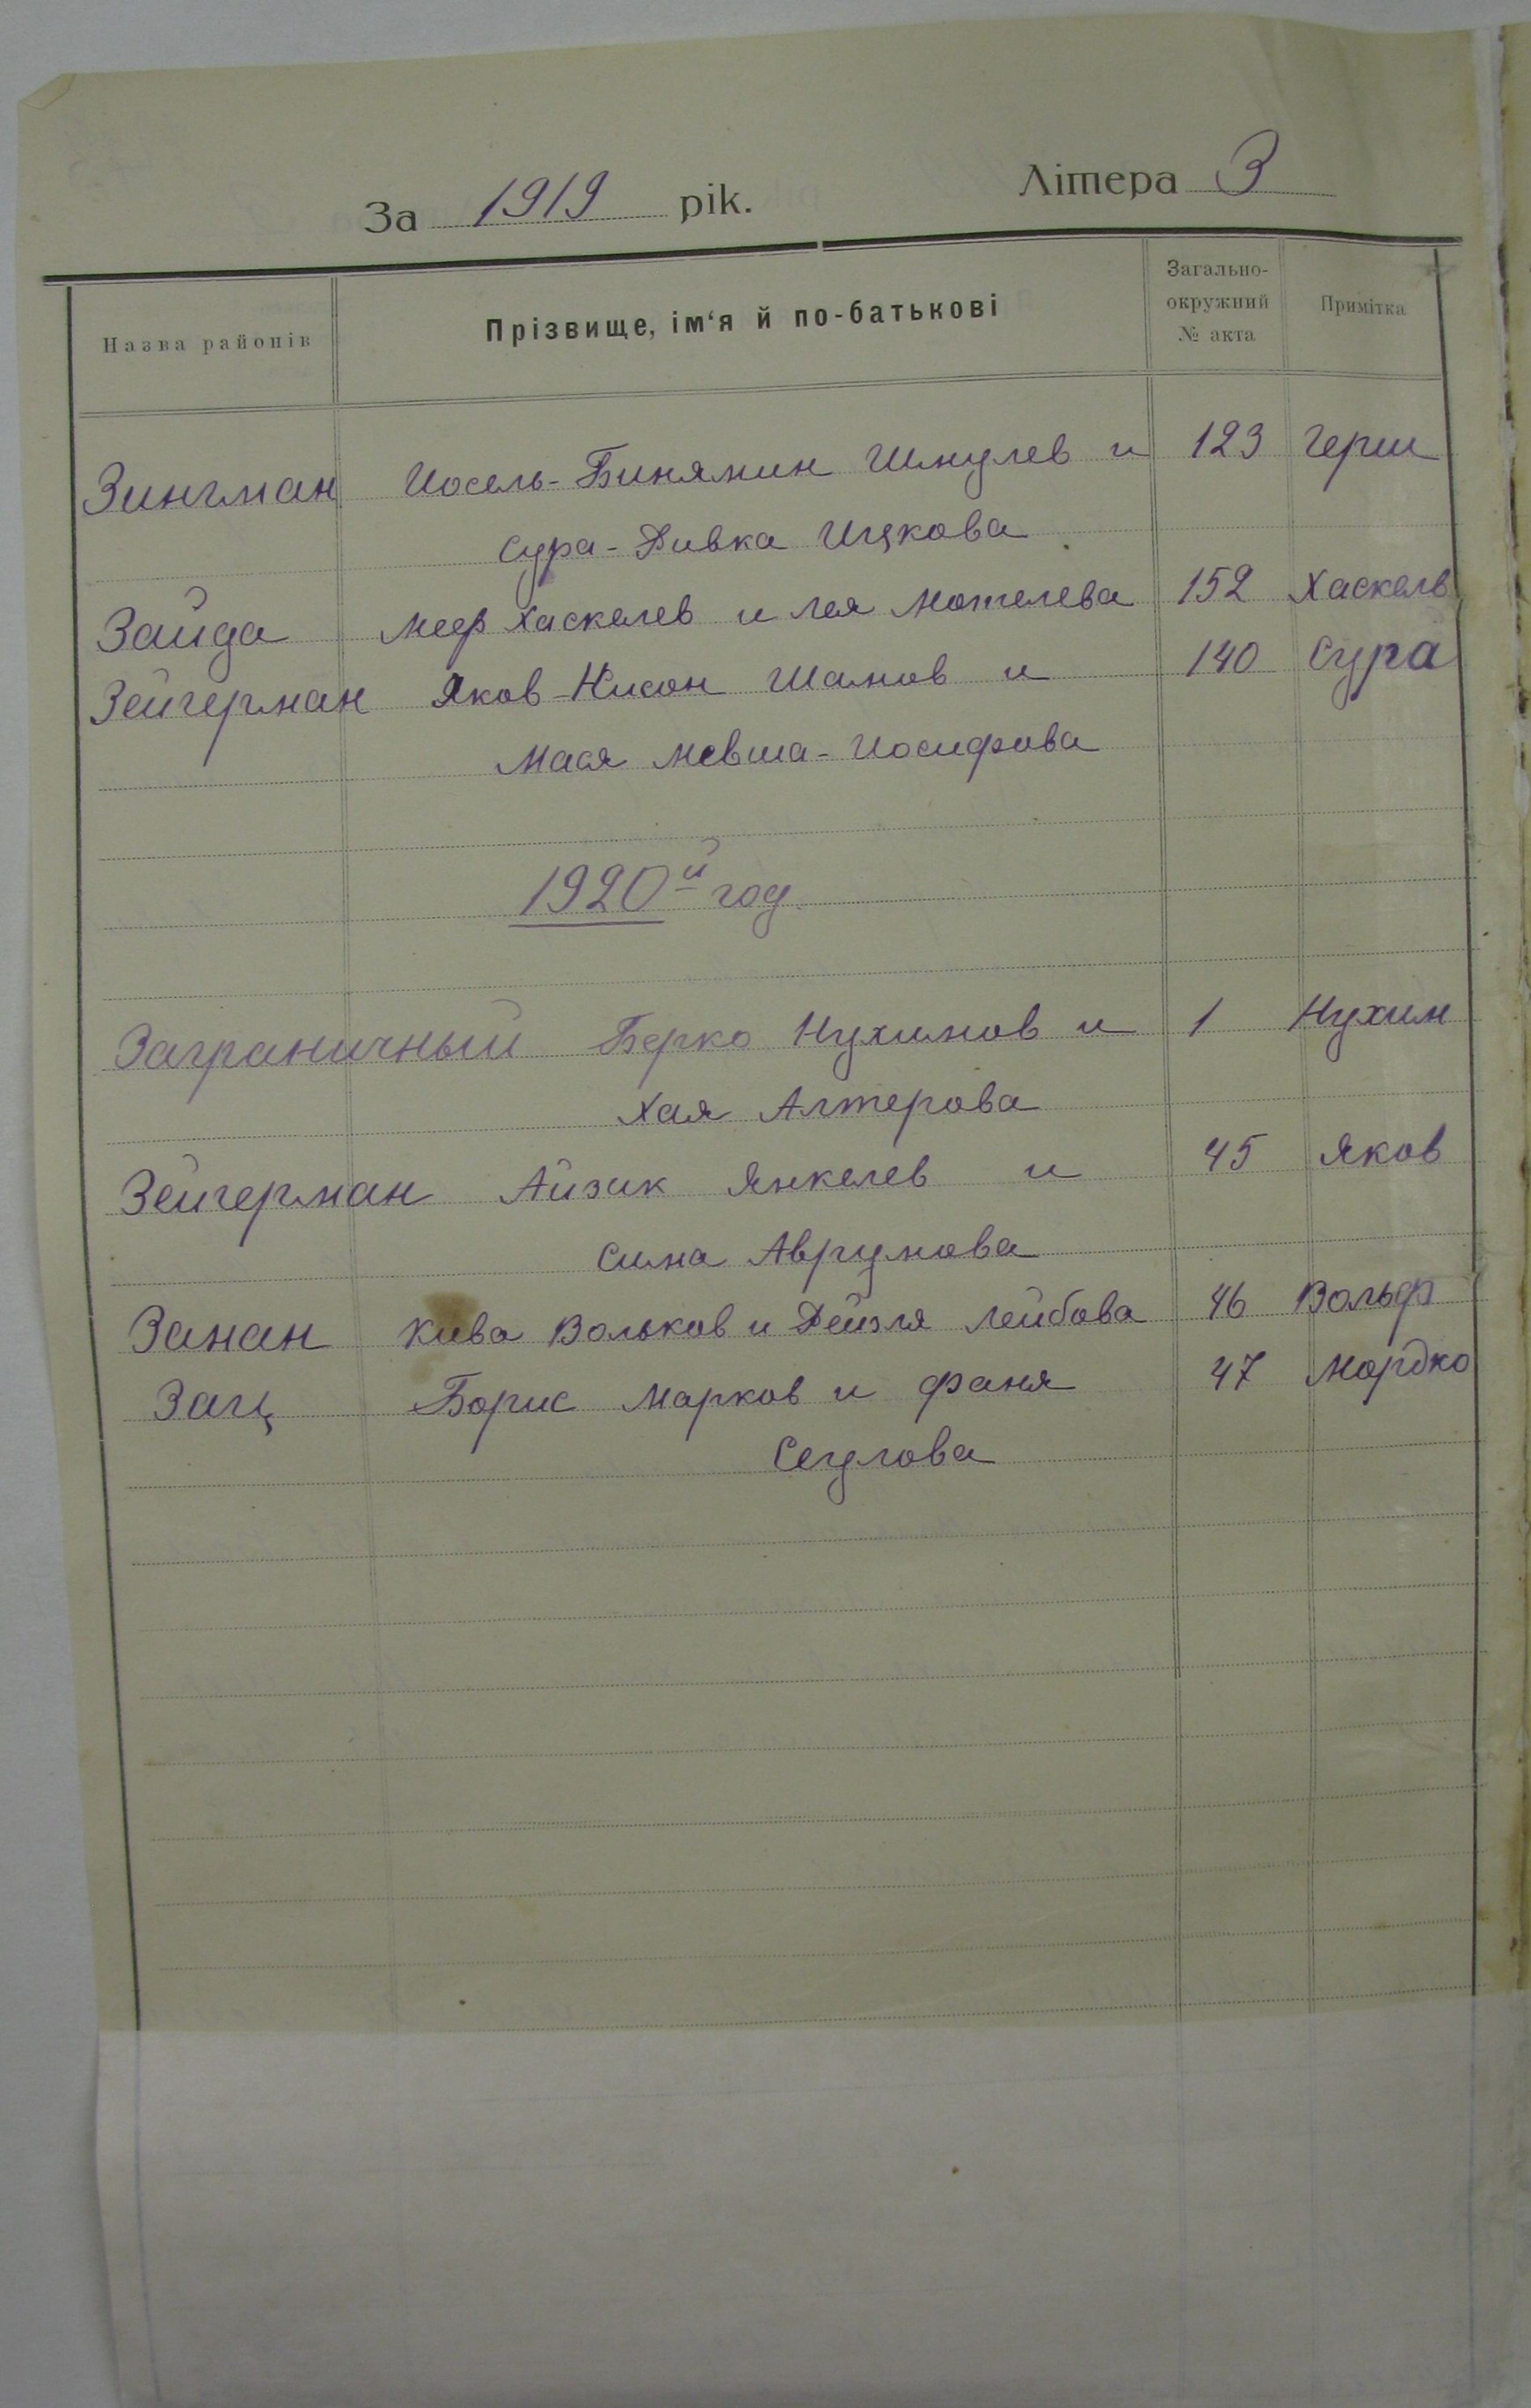 За 1919 рік. Літера З
Назва районів Прізвище, ім‘я й по-батькові Загально-окружний № акта Примітка
Зингман Иосель-Бинямин Шмулев и 123 Герш
Сура-Ривка Ицкова
Зайда Меер Хаскелев и Лея Мотелева 152 Хаскель
Зейгерман Яков-Нисон Шамов и 140 Сура
Мася Мевша-Иосифова
1920й год.
Заграничный Берко Нухимов и 1 Нухим
Хая Алтерова
Зейгерман Айзик Янкелев и 45 Яков
Сима Аврумова
Занан Кива Вольков и Рейзля Лейбова 46 Вольф
Зац Борис Марков и Фаня 47 Мордко
Сегулова